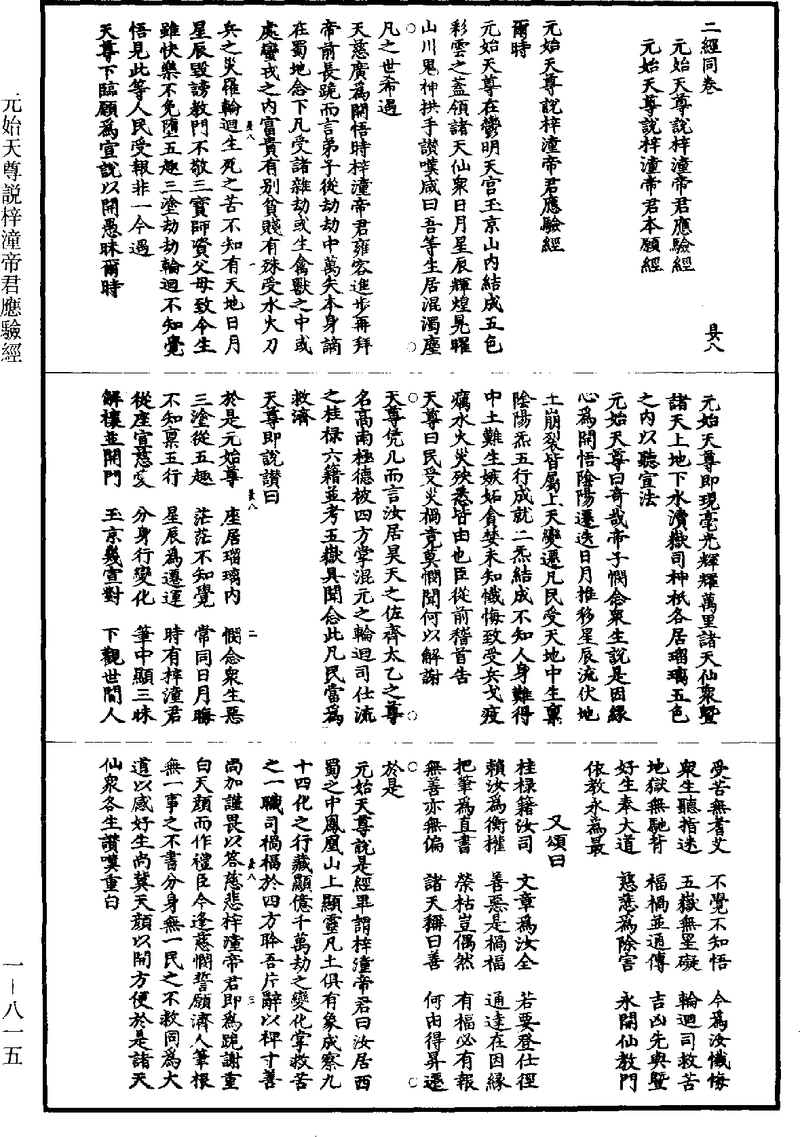 元始天尊說梓潼帝君應驗經
一–八一五
二經同卷
元始天尊說梓潼帝君應驗經
元始天尊說梓潼帝君本願經
元始天尊說梓潼帝君應驗經
爾時
元始天尊在鬱明天宮玉京山內結成五色
彩雲之蓋領諸天仙衆日月星辰輝煌晃曜
山川鬼神拱手讃嘆咸曰吾等生居混濁塵
凡之世希遇
天慈廣爲開悟時梓潼帝君雍容進步再拜
帝前長跪而言弟子從劫劫中萬失本身謫
在蜀地念下凡受諸雜劫或生禽獸之中或
處蠻戎之內富貴有別貧賤有殊受水火刀
兵之災羅輪迴生死之苦不知有天地日月
星辰毀謗教門不敬三寶師資父母致令生
雖快樂不免墮五趣三塗劫劫輪迴不知覺
悟見此等人民受報非一今遇
天尊下臨願爲宣說以開愚昧爾時
元始天尊即現毫光輝耀萬里諸天仙衆曁
諸天上地下水瀆嶽司神祇各居瑠璃五色
之內以聽宣法
元始天尊曰奇哉帝子憫念衆生說是因緣
心爲開悟陰陽遷迭日月推移星辰流伏地
土崩裂皆屬上天變遷凡民受天地中生稟
陰陽炁五行成就二炁結成不知人身難得
中土難生嫉妬貪婪未知懺悔致受兵戈疫
癘水火災殃悉皆由也臣從前稽首告
天尊曰民受災禍竟莫憫聞何以解謝
天尊凭几而言汝居昊天之佐齊太乙之尊
名高南極德被四方掌混元之輪迴司仕流
之桂祿六籍並考五嶽具聞念此凡民當爲
救濟
天尊即說讃曰
於是元始尊　座居瑠璃內　憫念衆生惡
三塗從五趣　茫茫不知覺　常同日月晦
不知稟五行　星辰爲遷運　時有梓潼君
從座宣慈愛　分身行變化　筆中顯三昧
解禳並開門　玉京幾宣對　下觀世間人
受苦無耆艾　不覺不知悟　今爲汝懺悔
衆生聽指迷　五嶽無罣礙　輪迴司救苦
地獄無馳背　福禍並通傳　吉凶先與曁
好生奉大道　慈慈爲除害　永開仙教門
依教永爲最
又頌曰
桂祿籍汝司　文章爲汝全　若要登仕徑
賴汝爲衡權　善惡是禍福　通達在因緣
把筆爲直書　榮枯豈偶然　有福必有報
無善亦無偏　諸天稱曰善　何由得昇遷
於是
元始天尊說是經畢謂梓潼帝君曰汝居西
蜀之中鳳凰山上顯靈凡土俱有象成察九
十四化之行藏顯億千萬劫之變化掌救苦
之一職司禍福於四方聆吾片辭以稗寸善
尚加謹畏以答慈悲梓潼帝君即爲跪謝重
白天顏而作禮臣今逢慈憫誓願濟人筆根
無一事之不書分身無一民之不救同爲大
道以感好生尚冀天顏以開方便於是諸天
仙衆各生讃嘆重白